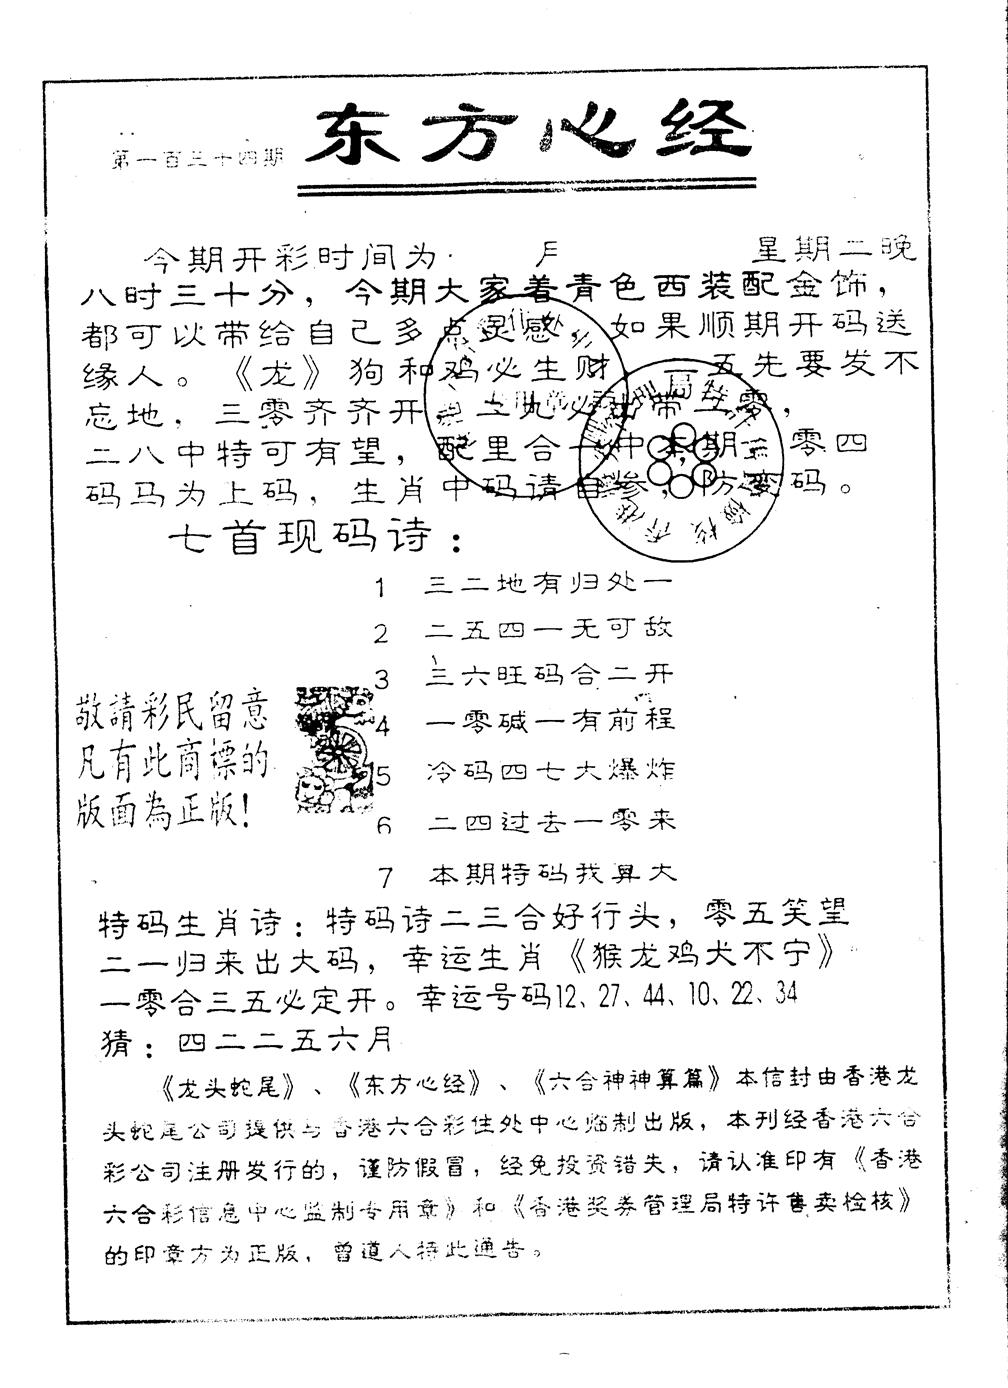 东方心经
第一百三十四期
今期开彩时间为 月 星期二晚
八时三十分，今期大家着青色西装配金饰，
都可以带给自己多点灵感 如果顺期开码送
缘人。《龙》狗和鸡必生财 一五先要发不
忘地，三零齐齐开 二九必 带二零，
二八中特可有望，配里合一中本期，零四
码马为上码，生肖中码请自参，防变码。
七首现码诗：
1 三二地有归处一
2 二五四一无可敌
3 三六旺码合二开
4 一零碱一有前程
5 冷码四七大爆炸
6 二四过去一零来
7 本期特码找算大
敬請彩民留意
凡有此商標的
版面為正版！
特码生肖诗：特码诗二三合好行头，零五笑望
二一归来出大码，幸运生肖《猴龙鸡犬不宁》
一零合三五必定开。幸运号码12、27、44、10、22、34
猜：四二二五六月
《龙头蛇尾》、《东方心经》、《六合神神算篇》本信封由香港龙
头蛇尾公司提供与香港六合彩住处中心临制出版，本刊经香港六合
彩公司注册发行的，谨防假冒，经免投资错失，请认准印有《香港
六合彩信息中心监制专用章》和《香港奖券管理局特许售卖检核》
的印章方为正版，曾道人特此通告。